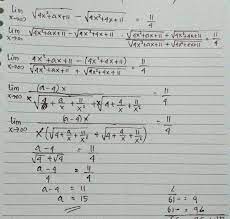 lim x→∞ √(4x²+ax+11) − √(4x²+4x+11) = 11/4
lim x→∞ √(4x²+ax+11) − √(4x²+4x+11) · (√(4x²+ax+11) + √(4x²+4x+11)) / (√(4x²+ax+11) + √(4x²+4x+11)) = 11/4
lim x→∞ (4x²+ax+11 − (4x²+4x+11)) / (√(4x²+ax+11) + √(4x²+4x+11)) = 11/4
lim x→∞ (a−4)x / (x√(4+a/x+11/x²) + x√(4+4/x+11/x²)) = 11/4
lim x→∞ (a−4)x / (x(√(4+a/x+11/x²) + √(4+4/x+11/x²))) = 11/4
(a−4) / (√4+√4) = 11/4
(a−4)/4 = 11/4
a−4 = 11
a = 15